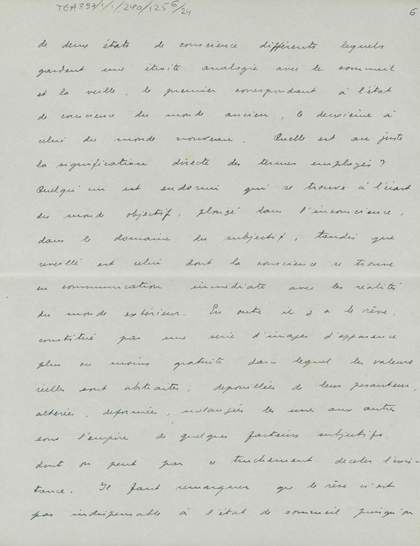 TCA 997/1/1/240/1256/24
6
de deux états de conscience différents lesquels
gardent une étroite analogie avec le sommeil
et la veille, le premier correspondant à l'état
de conscience du monde ancien, le deuxième à
celui du monde nouveau. Quelle est au juste
la signification directe des termes employés?
Quelqu'un est endormi qui se trouve à l'écart
du monde objectif, plongé dans l'inconscience,
dans le domaine du subjectif, tandis que
réveillé est celui dont la conscience se trouve
en communication immédiate avec les réalités
du monde extérieur. En outre il y a le rêve,
constitué par une série d'images d'apparence
plus ou moins gratuite dans lequel les valeurs
réelles sont abstraites, dépouillées de leur pesanteur,
altérées, déformées, mélangées les unes aux autres
sous l'empire de quelques facteurs subjectifs
dont on peut pas déceler l'exis-
tance. Il faut remarquer que le rêve n'est
pas indispensable à l'état de sommeil puisqu'on